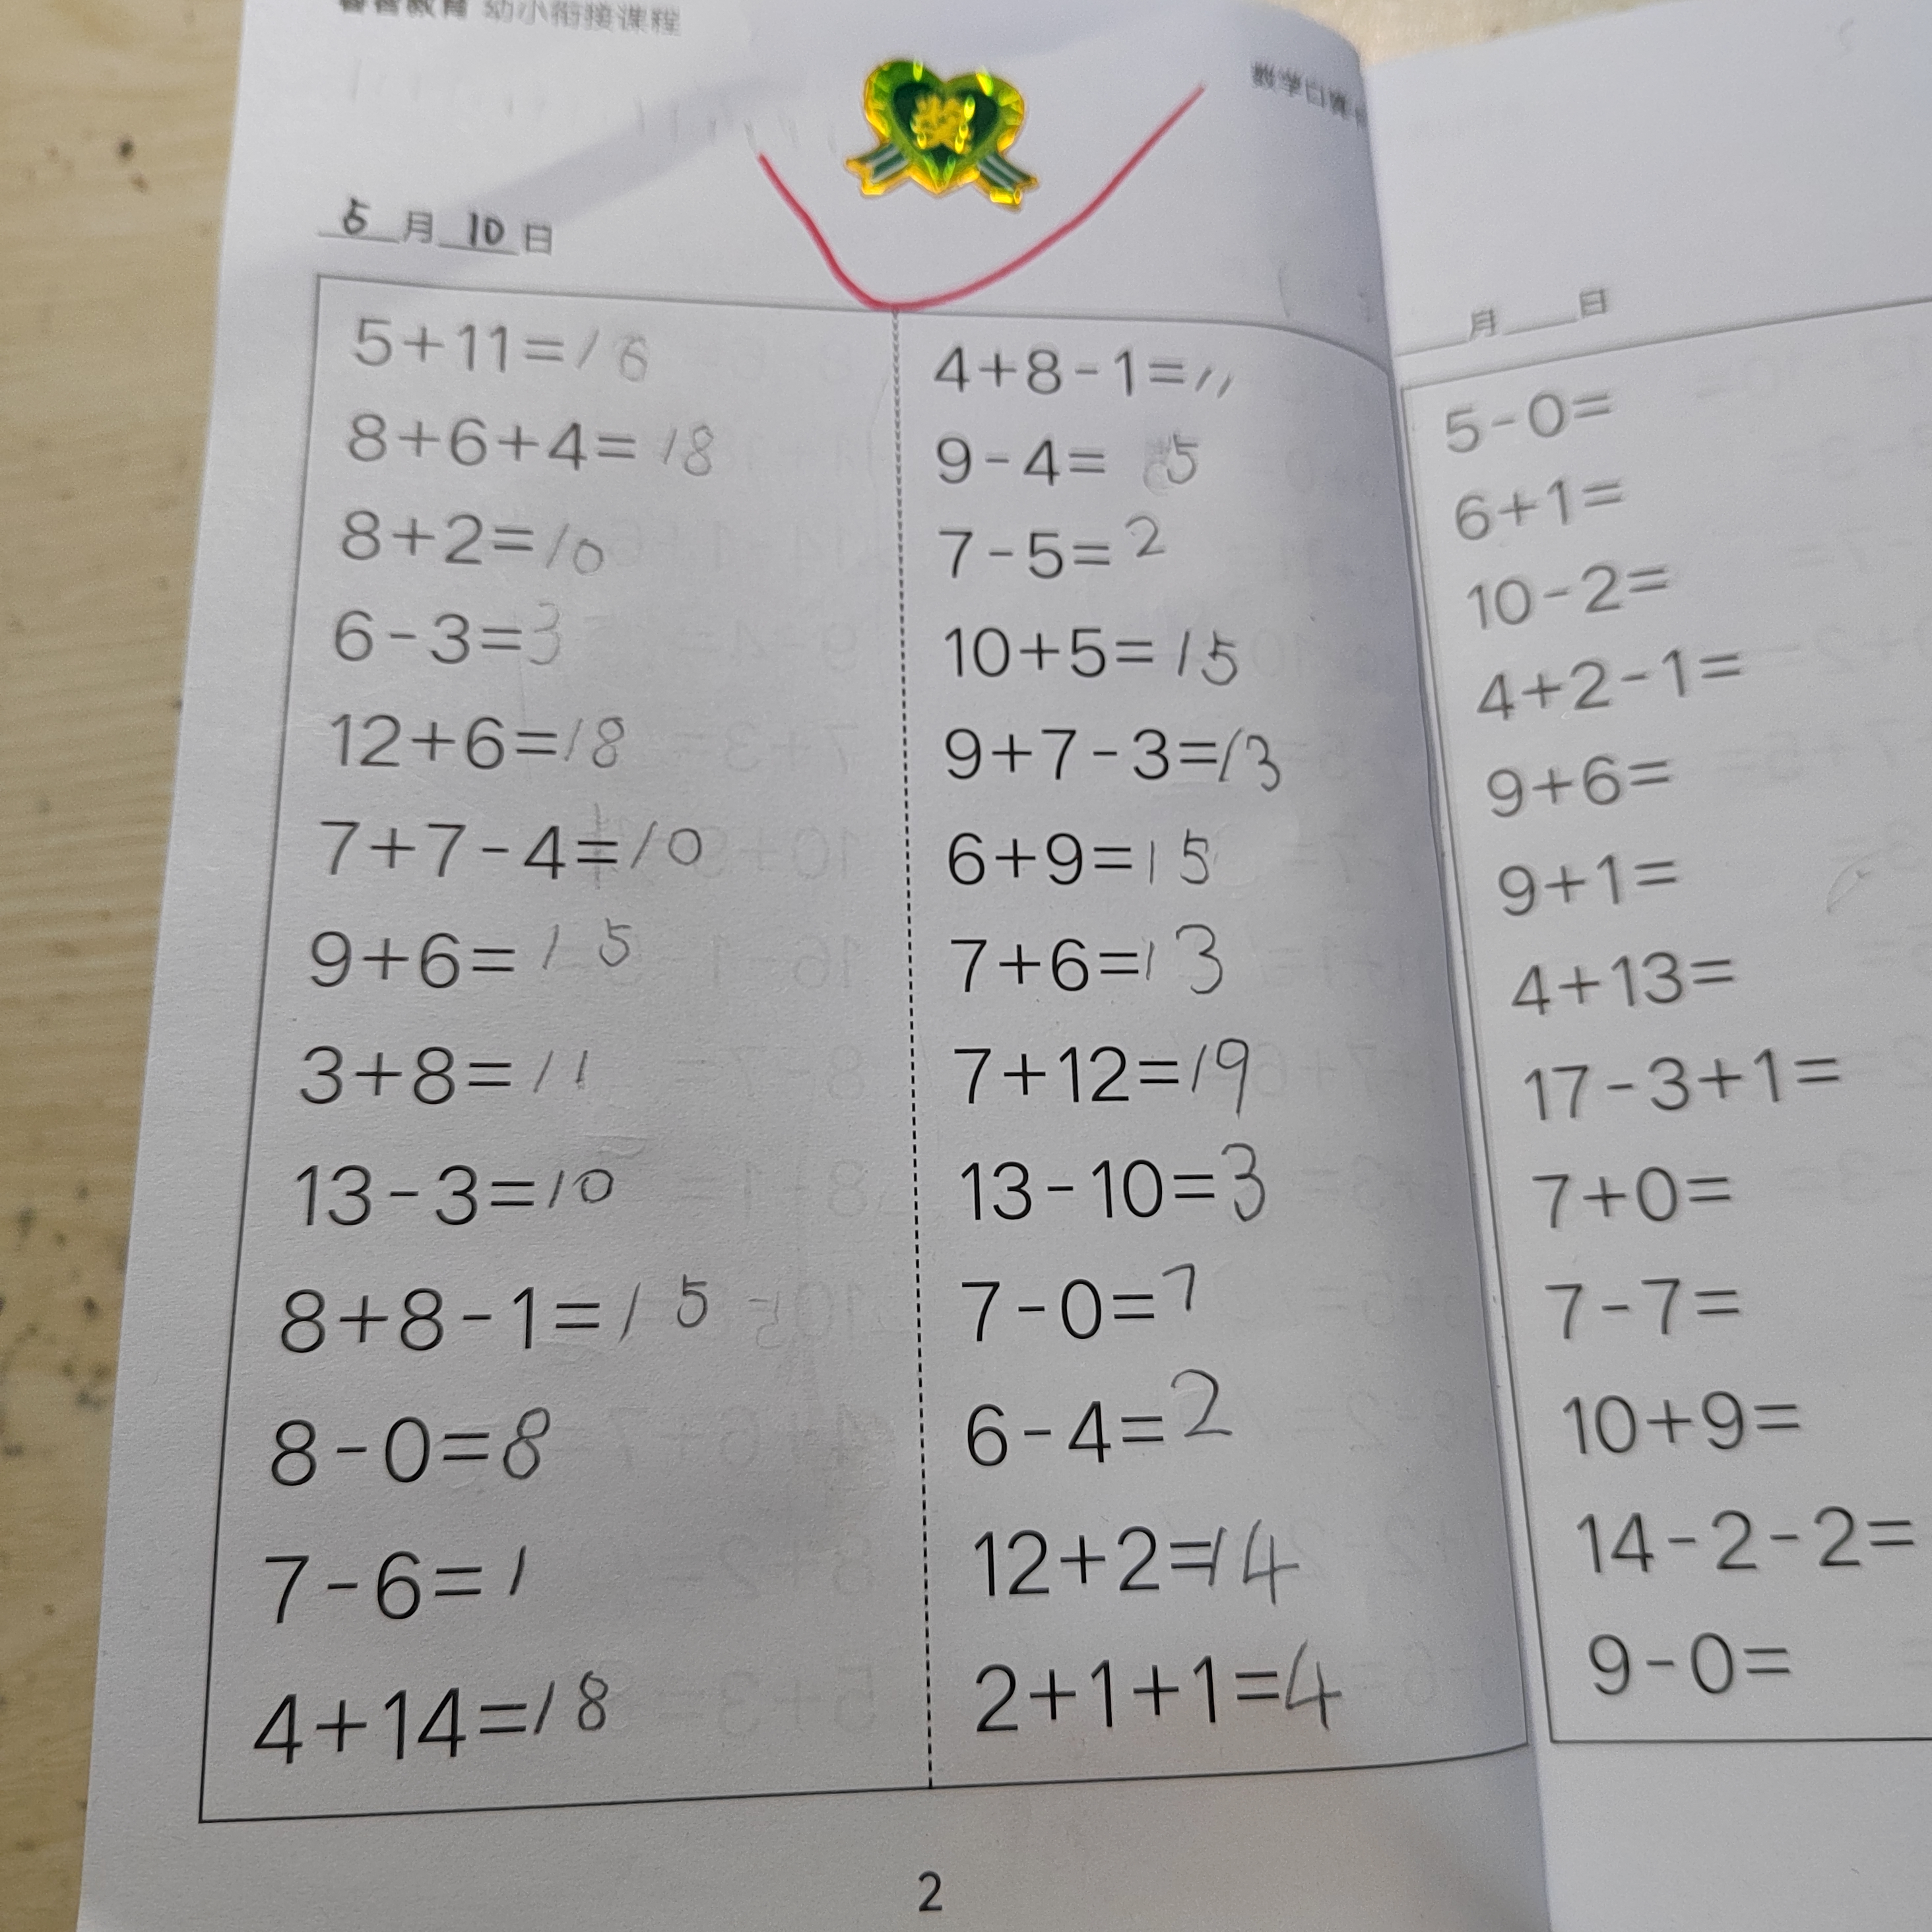 幼小衔接课程
数学口算
5月10日
5+11=16
8+6+4=18
8+2=10
6-3=3
12+6=18
7+7-4=10
9+6=15
3+8=11
13-3=10
8+8-1=15
8-0=8
7-6=1
4+14=18
4+8-1=11
9-4=5
7-5=2
10+5=15
9+7-3=13
6+9=15
7+6=13
7+12=19
13-10=3
7-0=7
6-4=2
12+2=14
2+1+1=4
2
月 日
5-0=
6+1=
10-2=
4+2-1=
9+6=
9+1=
4+13=
17-3+1=
7+0=
7-7=
10+9=
14-2-2=
9-0=